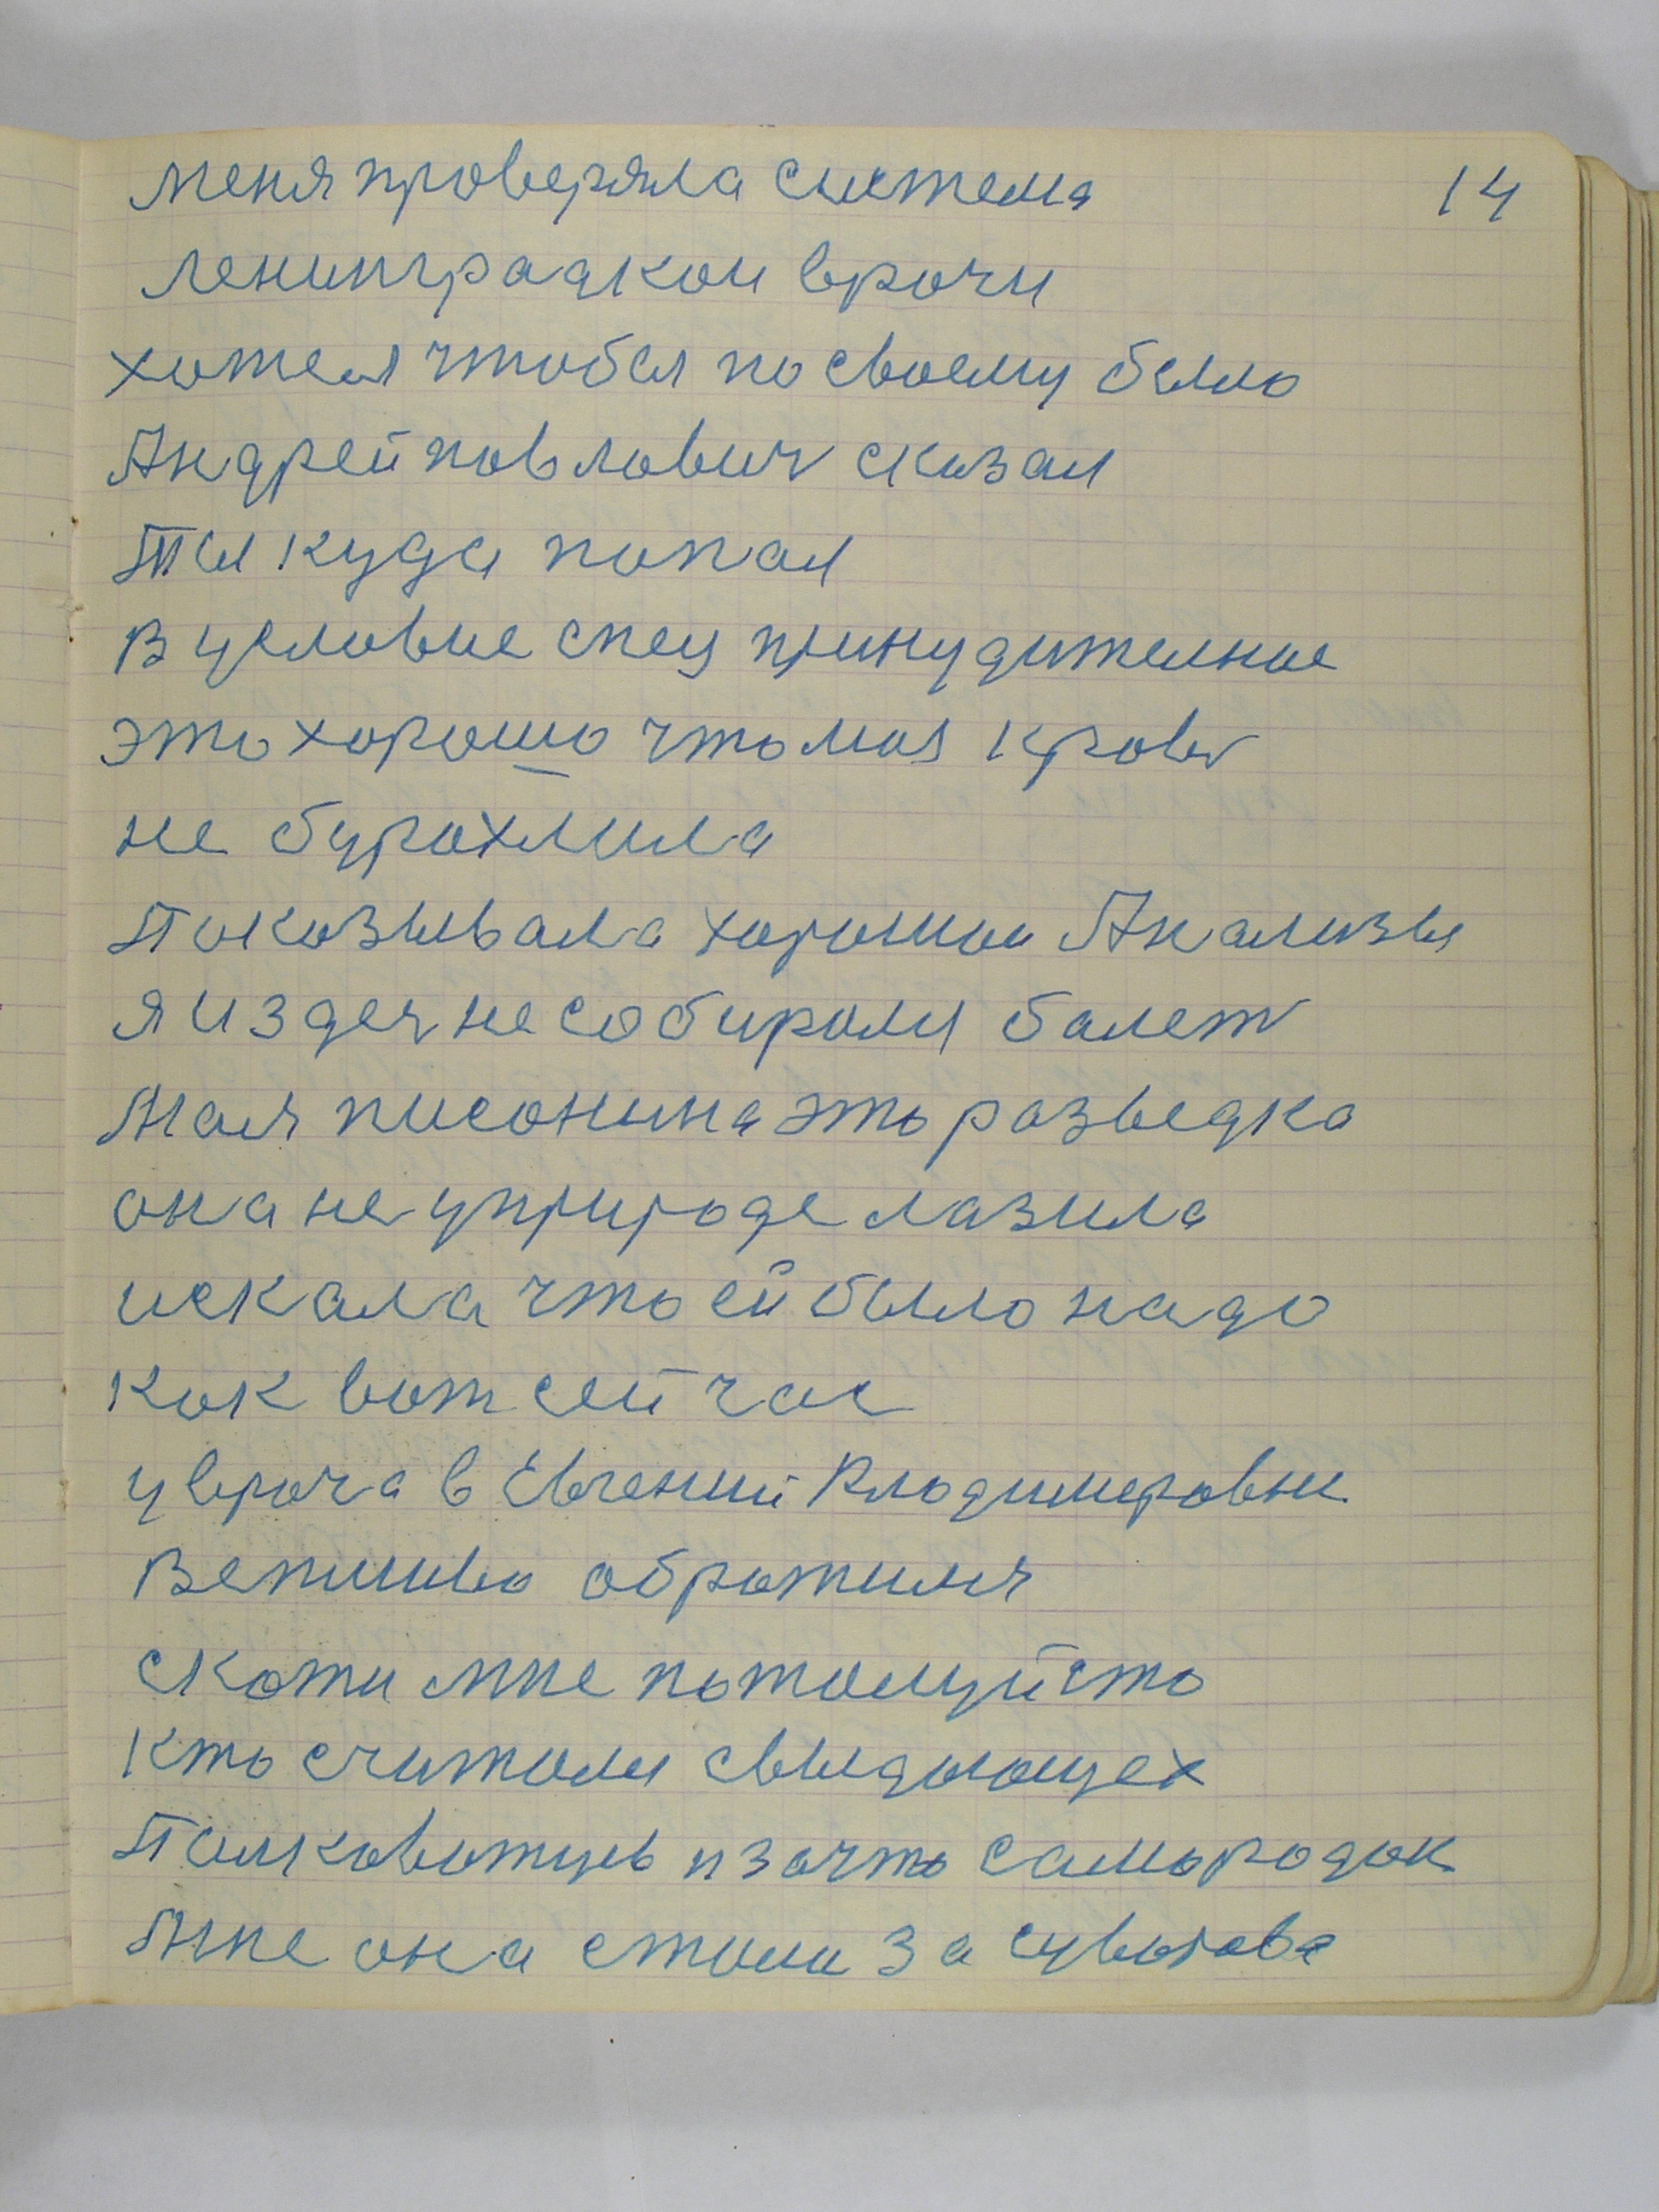 меня проверяла система 14
Ленинградкои врочи
хотел чтобы по своему было
Андрей повлович сказал
Ты куда попал
В условие спец принудителное
это хорошо что моя кровь
не бурахлила
Показывала хорошои Анализы
я и здес не собирался болет
Моя писонина это разведка
она не у природе лазила
искала что ей было надо
Как вот сейчас
у врача в Евгений Владимеровне
Вепливо обротился
скажи мне пожалуйсто
Кто считался свыдающех
Полководцев и за что самородок
Мне она стала за суворова